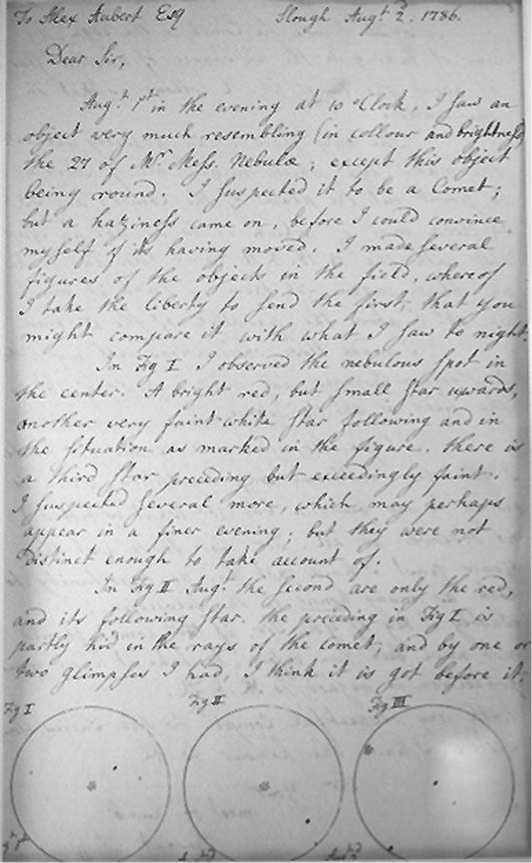 To Alex Aubert Esq Slough Augt. 2d. 1786.
Dear Sir,
Augt. 1st in the evening at 10 o'Clock, I saw an
object very much resembling (in collour and brightness)
the 27 of Mr. Mess. Nebulæ; except this object
being round. I suspected it to be a Comet;
but a haziness came on, before I could convince
myself of its having moved. I made several
figures of the objects in the field, whereof
I take the liberty to send the first, that you
might compare it with what I saw to night.
In Fig I I observed the nebulous spot in
the center. A bright red, but small star upwards,
another very faint white star following and in
the situation as marked in the figure. there is
a third star preceding but exceedingly faint.
I suspected several more, which may perhaps
appear in a finer evening; but they were not
distinct enough to take account of.
In Fig II Augt. the second are only the red,
and its following star. the preceding in Fig I is
partly hid in the rays of the comet; and by one or
two glimpses I had, I think it is got before it.
Fig I Fig II Fig III